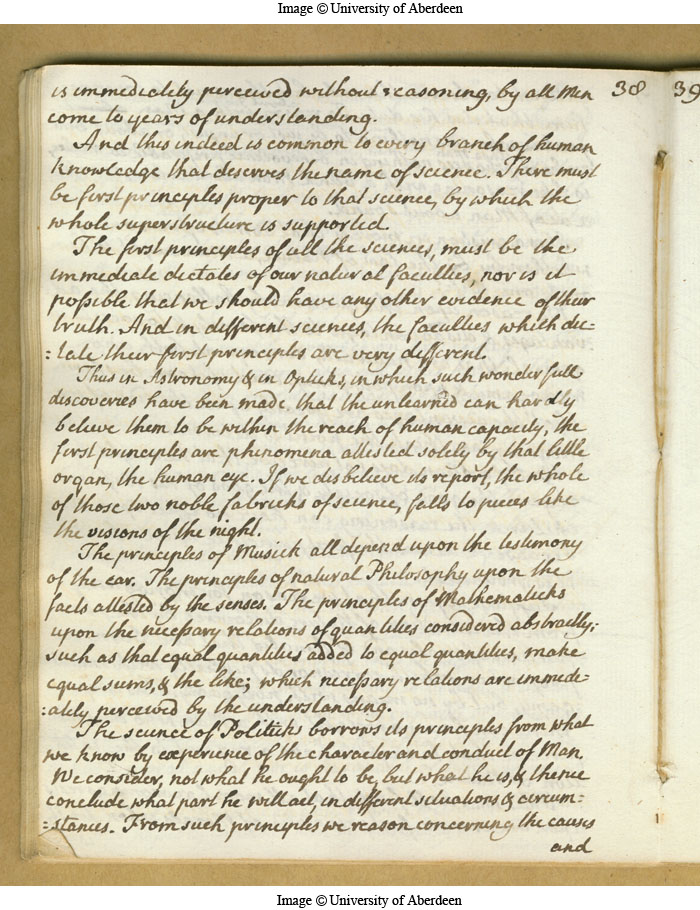 Image © University of Aberdeen
38
39
is immediately perceived without reasoning, by all Men
come to years of understanding.
And this indeed is common to every branch of human
knowledge that deserves the name of science. There must
be first principles proper to that science, by which the
whole superstructure is supported.
The first principles of all the sciences, must be the
immediate dictates of our natural faculties, nor is it
possible that we should have any other evidence of their
truth. And in different sciences, the faculties which dic-
:tate their first principles are very different.
Thus in Astronomy & in Opticks, in which such wonderfull
discoveries have been made, that the unlearned can hardly
believe them to be within the reach of human capacity, the
first principles are phenomena attested solely by that little
organ, the human eye. If we disbelieve its report, the whole
of those two noble fabricks of science, falls to pieces like
the visions of the night.
The principles of Musick all depend upon the testimony
of the ear. The principles of natural Philosophy upon the
facts attested by the senses. The principles of Mathematicks
upon the necessary relations of quantities considered abstractly;
such as that equal quantities added to equal quantities, make
equal sums, & the like; which necessary relations are immede-
:ately perceived by the understanding.
The science of Politicks borrows its principles from what
we know by experience of the character and conduct of Man.
We consider, not what he ought to be, but what he is, & thence
conclude what part he will act, in different situations & circum-
:stances. From such principles we reason concerning the causes
and
Image © University of Aberdeen